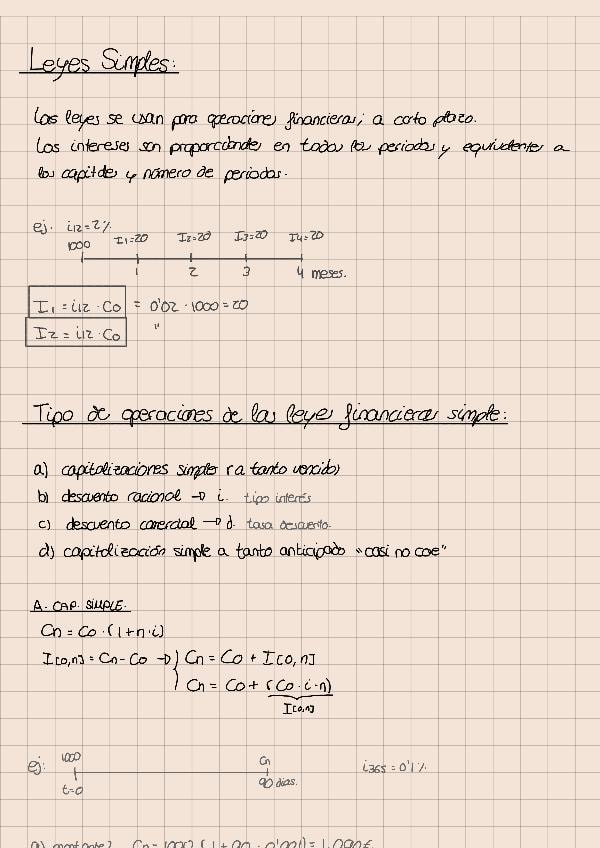 Leyes Simples:
Las leyes se usan para operaciones financieras, a corto plazo.
Los intereses son proporcionales en todos los periodos y equivalentes a
los capitales y número de periodos.
ej. i12=2%
1000 I1=20 I2=20 I3=20 I4=20
1 2 3 4 meses.
I1 = i12 · Co = 0'02 · 1000 = 20
I2 = i12 · Co "
Tipo de operaciones de las leyes financieras simple:
a) capitalizaciones simples (a tanto vencido)
b) descuento racional → i. tipo interés
c) descuento comercial → d. tasa descuento.
d) capitalización simple a tanto anticipado "casi no cae"
A. CAP. SIMPLE.
Cn = Co · (1+n·i)
I[0,n] = Cn - Co → Cn = Co + I[0,n]
Cn = Co + (Co · i · n)
I[0,n]
ej: 1000 Cn i365 = 0'1%
t=0 90 días.
a) montante? Cn = 1000 (1 + 90 · 0'001) = 1.090€